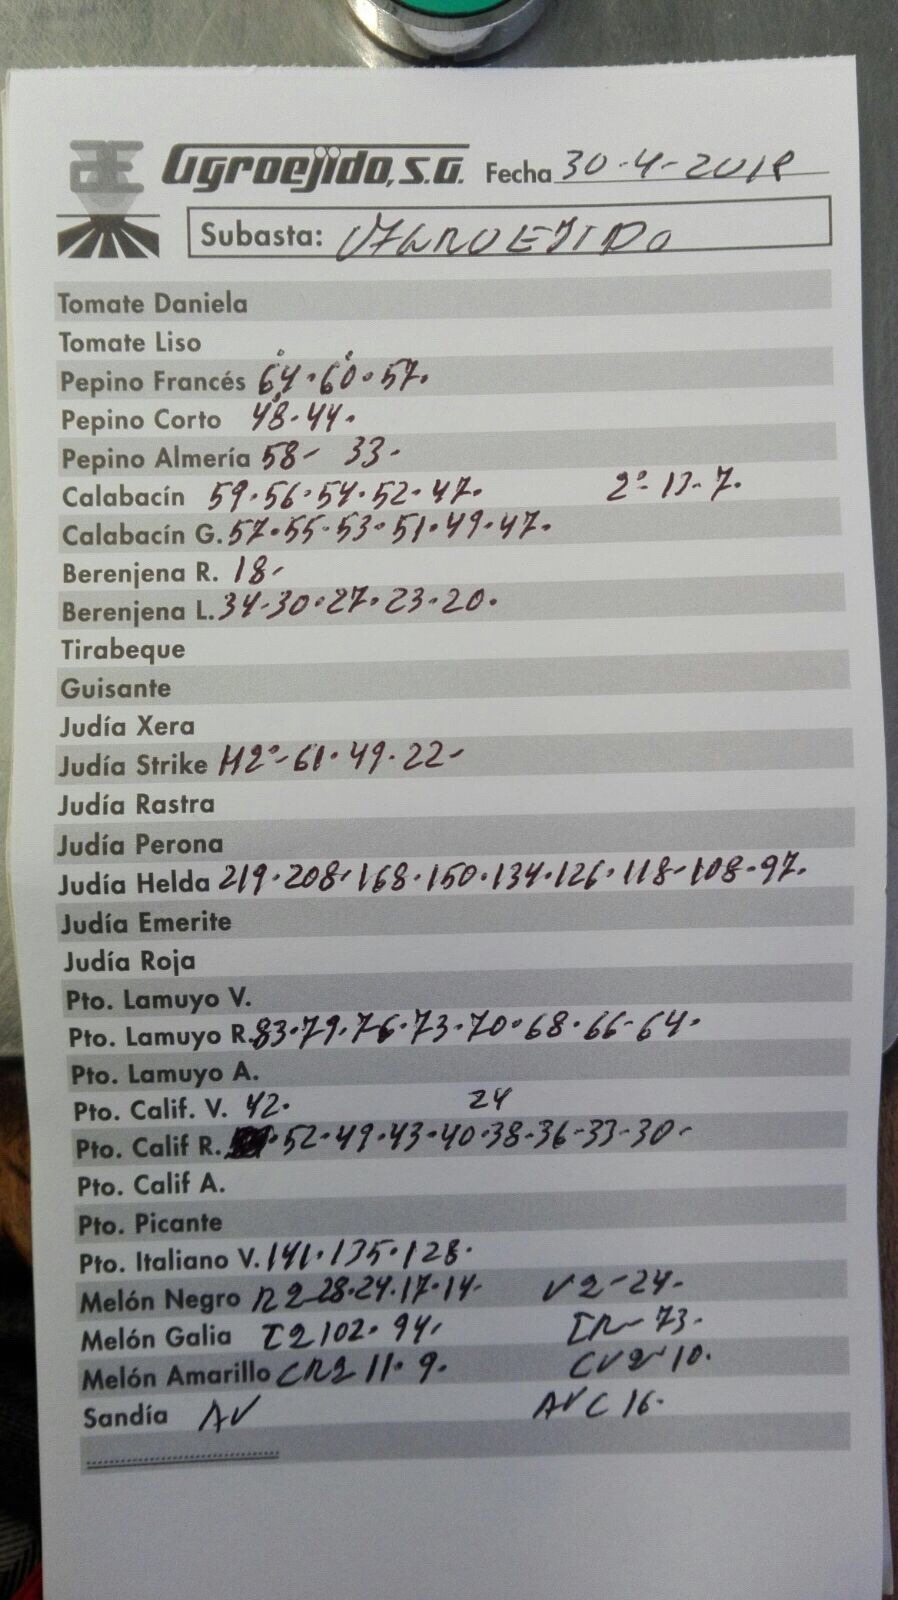 Agroejido, S.A. Fecha 30-4-2018
Subasta: AGROEJIDO
Tomate Daniela
Tomate Liso
Pepino Francés 64.60.57.
Pepino Corto 48.44.
Pepino Almería 58- 33.
Calabacín 59.56.54.52.47. 2ª-13-7.
Calabacín G. 57.55.53.51.49.47.
Berenjena R. 18-
Berenjena L. 34-30.27.23.20.
Tirabeque
Guisante
Judía Xera
Judía Strike H2ª-61.49.22-
Judía Rastra
Judía Perona
Judía Helda 219.208.168.150.134.126.118-108-97.
Judía Emerite
Judía Roja
Pto. Lamuyo V.
Pto. Lamuyo R. 83.79.76.73.70.68.66-64.
Pto. Lamuyo A.
Pto. Calif. V. 42. 24
Pto. Calif R. 52-49.43.40.38-36-33-30-
Pto. Calif A.
Pto. Picante
Pto. Italiano V. 141.135.128.
Melón Negro R2-28.24.17.14- V2-24-
Melón Galia I2 102. 94, IR-73.
Melón Amarillo CR2 11.9. CV2-10.
Sandía AV AVC 16.